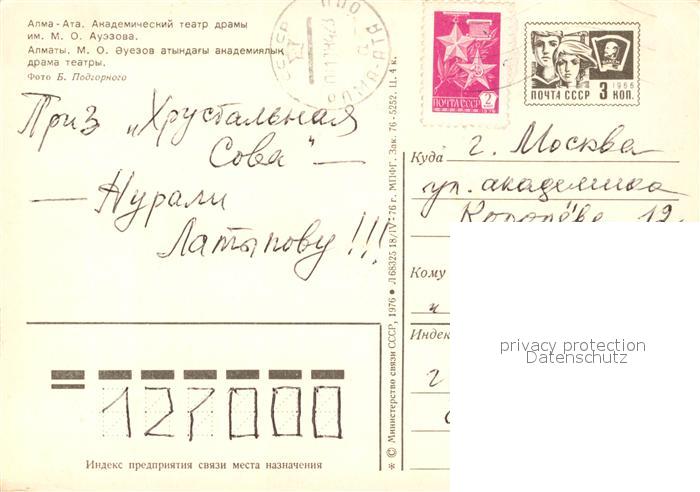 Алма-Ата. Академический театр драмы
им. М. О. Ауэзова.
Алматы. М. О. Әуезов атындағы академиялық
драма театры.
Фото Б. Подгорного
Приз „Хрустальная
Сова" —
— Нурали
Латыпову!!!
ПОЧТА СССР 2
1966
ПОЧТА СССР 3 КОП.
Куда г. Москва
ул. академика
Королёва 12
Кому
и
Индекс
г
* © Министерство связи СССР, 1976 ● Л 68325 18/IV-76 г. МПФГ. Зак. 76-5252. Ц. 4 к.
127000
Индекс предприятия связи места назначения
privacy protection
Datenschutz